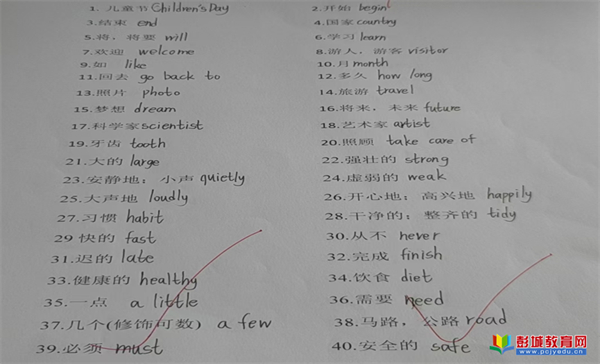 1. 儿童节 Children's Day 2. 开始 begin
3. 结束 end 4. 国家 country
5. 将，将要 will 6. 学习 learn
7. 欢迎 welcome 8. 游人，游客 visitor
9. 如 like 10. 月 month
11. 回去 go back to 12. 多久 how long
13. 照片 photo 14. 旅游 travel
15. 梦想 dream 16. 将来，未来 future
17. 科学家 scientist 18. 艺术家 artist
19. 牙齿 tooth 20. 照顾 take care of
21. 大的 large 22. 强壮的 strong
23. 安静地；小声 quietly 24. 虚弱的 weak
25. 大声地 loudly 26. 开心地；高兴地 happily
27. 习惯 habit 28. 干净的；整齐的 tidy
29 快的 fast 30. 从不 never
31. 迟的 late 32. 完成 finish
33. 健康的 healthy 34. 饮食 diet
35. 一点 a little 36. 需要 need
37. 几个(修饰可数) a few 38. 马路，公路 road
39. 必须 must 40. 安全的 safe
彭城教育网
www.pcjyedu.cn